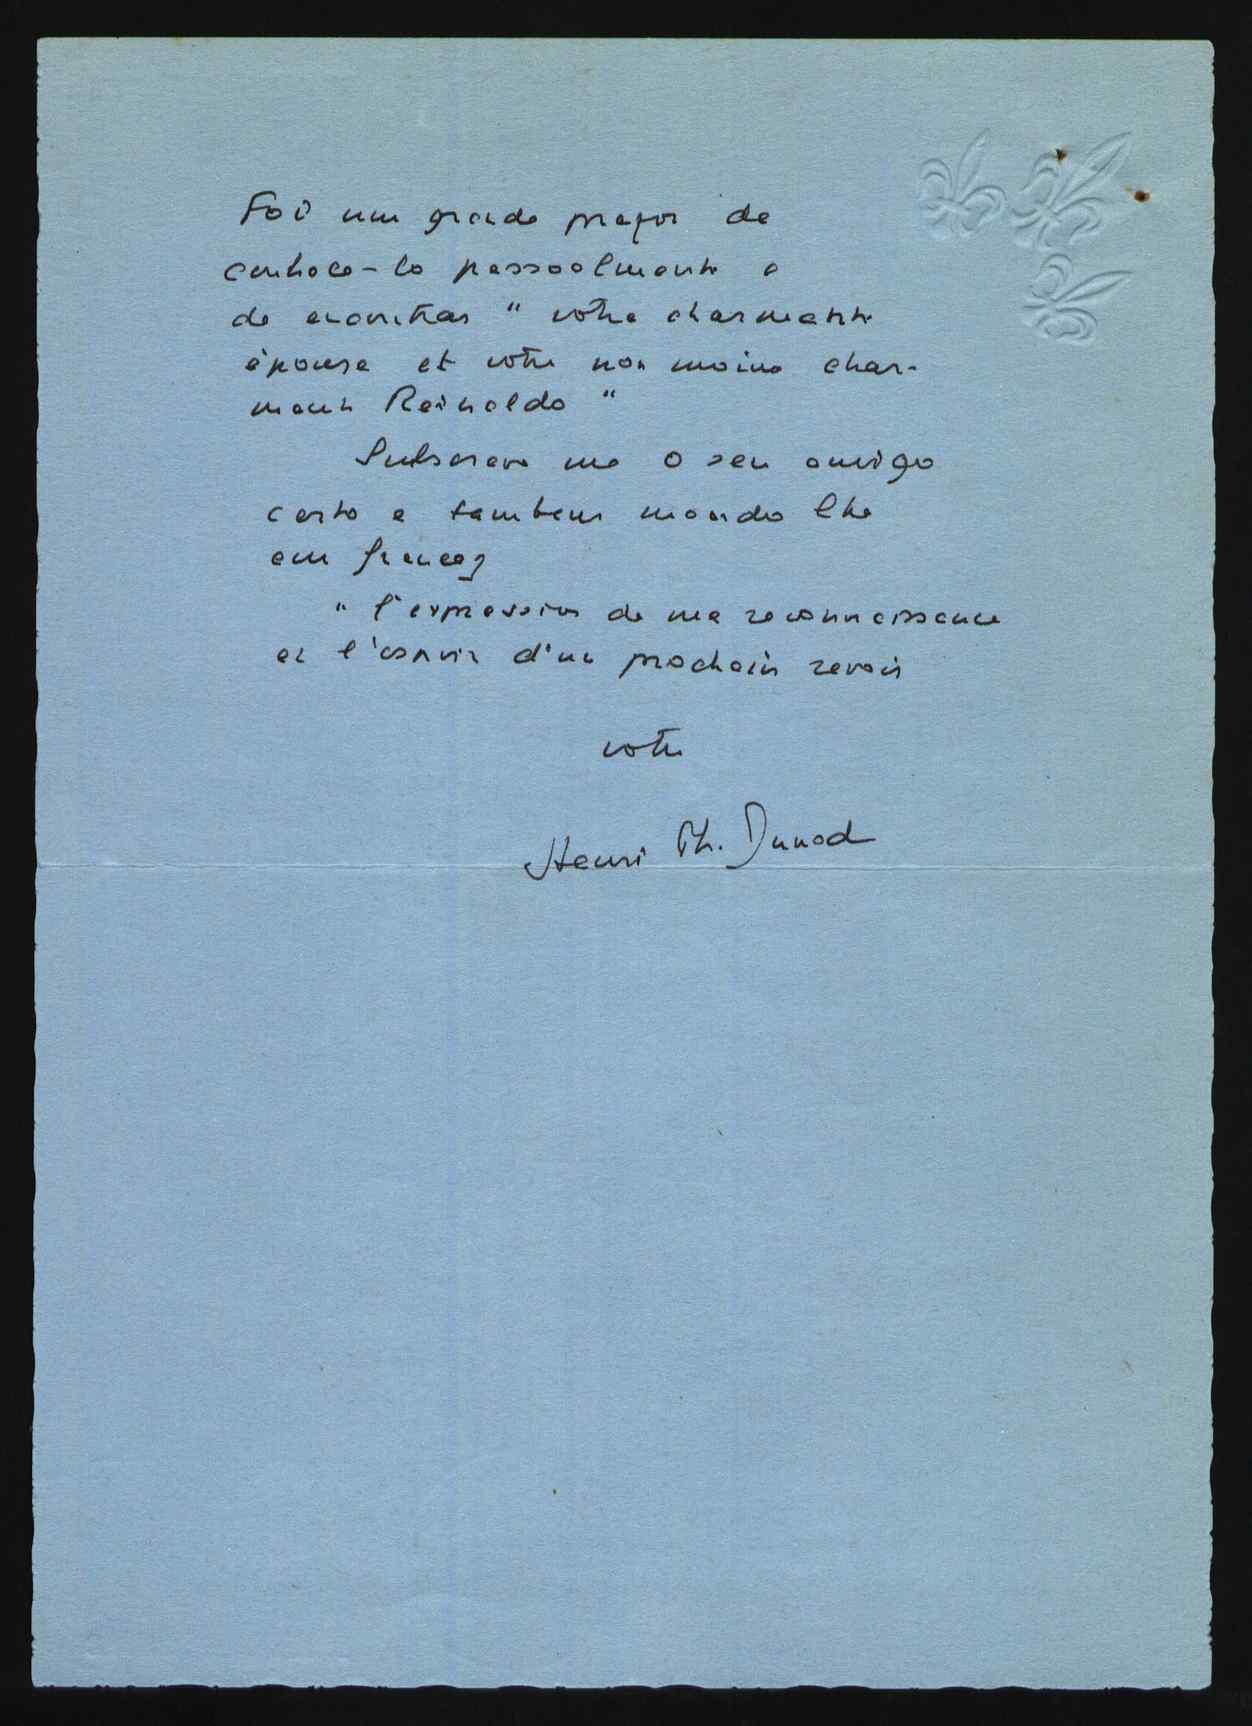 Foi um grande prazer de
conhece-lo pessoalmente e
de encontrar " votre charmante
épouse et votre non moins char-
mant Reinaldo "
Subscrevo me o seu amigo
certo e tambem mando lhe
em francez
" l'expression de ma reconnaissance
et l'espoir d'un prochain revoir
votre
Henri Ph. Dunod